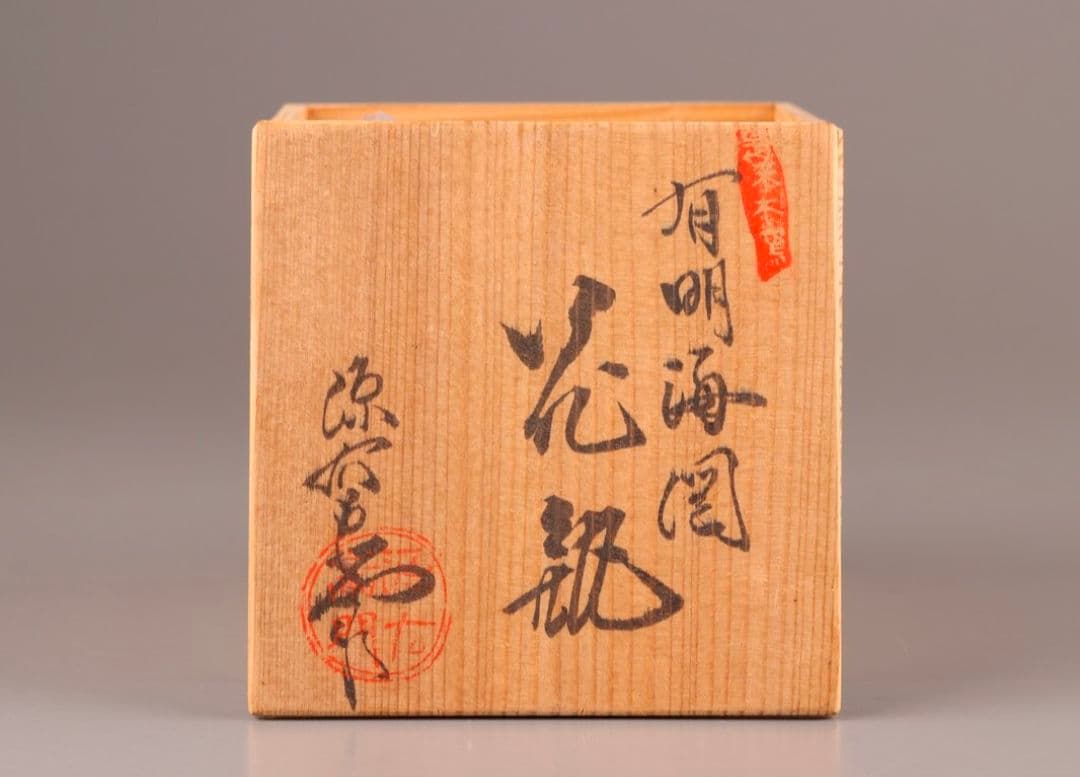 有明海図
花瓶
源右衛門